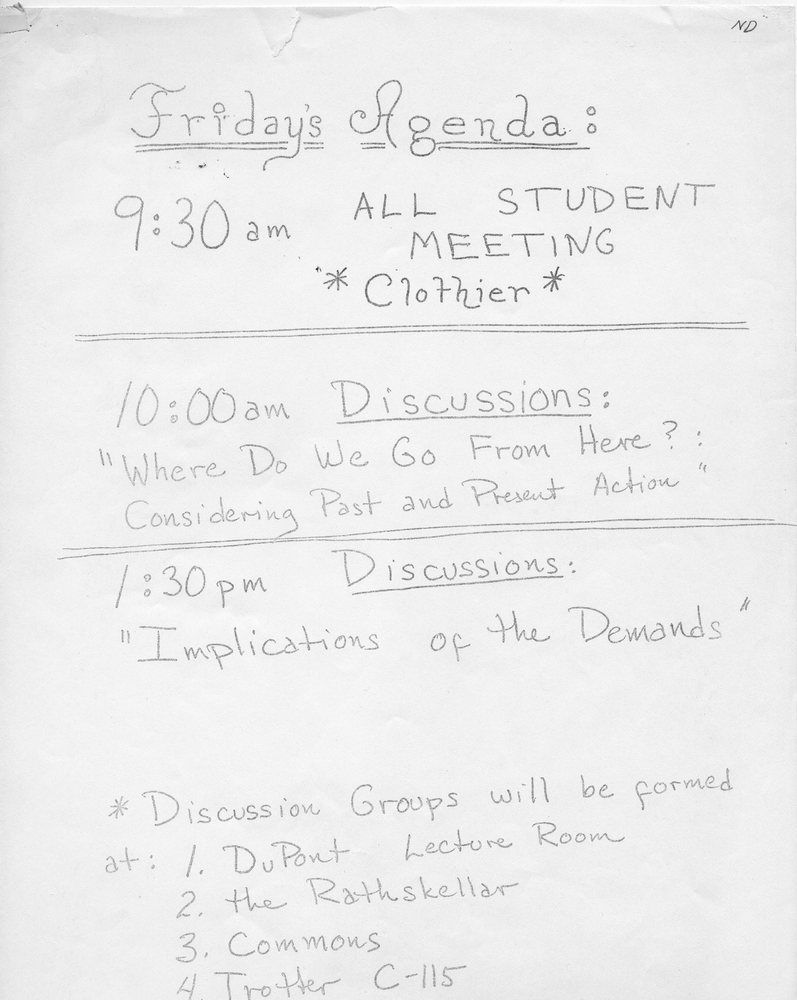 ND
Friday's Agenda:
9:30 am ALL STUDENT
MEETING
* Clothier *
10:00 am Discussions:
"Where Do We Go From Here? :
Considering Past and Present Action"
1:30 pm Discussions:
"Implications of the Demands"
* Discussion Groups will be formed
at: 1. DuPont Lecture Room
2. the Rathskellar
3. Commons
4. Trotter C-115